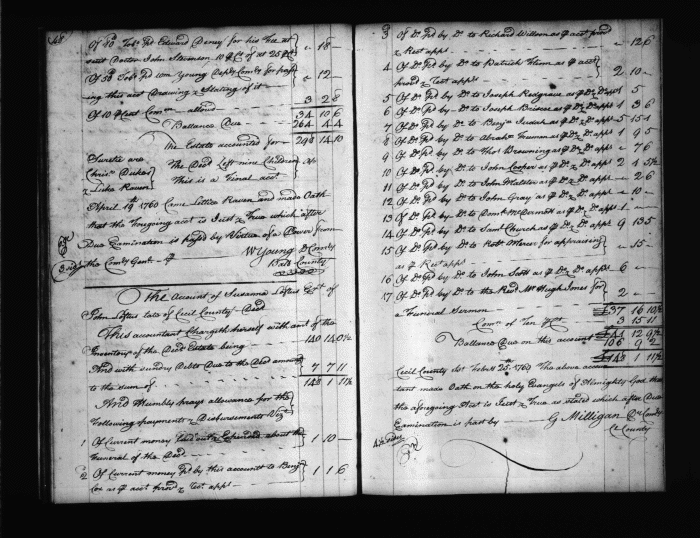 48
Of Do Tobo Pd Edward Dorsey for his Fee at
suit Doctor John Stevenson
18 —
Of Do Tobo Pd Wm Young Depty Comry for pass
ing this acct Drawing & Stating of it
12 —
Of 10 p Cent Comn allowd
3 2 8
34 10 6
Ballance Due
264 4 4
The Estate accounted for
298 14 10
Suretie are
The Decd Left nine Children
This is a Final acct
& Luke Raven
April 19th 1760 Came Lettice Raven and made Oath
that the foregoing acct is Just & True which after
Due Examination is pass'd by Vertue of a Power from
the Comry Genl
W Young D Comry
Balt County
The Account of Susanna Loftus of
John Loftus late of Cecil County Decd
This accountant Chargeth herself with amt of the
Inventory of the Decd Estate being
140 14 0½
And with sundry Debts Due to the Decd amount
7 7 11
to the sum of
148 1 11½
And Humbly prays allowance for the
following payments & Disbursements Vizt
1 Of Current money laid out & Expended about the
Funeral of the Decd
1 10 —
2 Of Current money Pd by this accountt to Benj
Cox as p acct provd & Test appl
1 1 6
3 Of Do Pd by Do to Richard Willson as p acct provd
& Rect appl
12 6
4 Of Do Pd by Do to Patrick as p acct
provd & Test appl
2 10 —
5 Of Do Pd by Do to Joseph Redgrave as p Do & Do appl
5
6 Of Do Pd by Do to Joseph Briscoe as p Do & Do appl
1 3 6
7 Of Do Pd by Do to Benja as p Do & Do appl
5 15 1
8 Of Do Pd by Do to Abrahm Freeman as p Do & Do appl
1 9 5
9 Of Do Pd by Do to Thos Browning as p Do & Do appl
7 6
10 Of Do Pd by Do to John Cooper as p Do & Do appl
2 4 5½
11 Of Do Pd by Do to John as p Do & Do appl
2 6
12 Of Do Pd by Do to John Gray as p Do & Do appl
10 —
13 Of Do Pd by Do to as p Do & Do appl
1 —
14 Of Do Pd by Do to Saml Church as p Do & Do appl
9 13 5
15 Of Do Pd by Do to Robt Mercer for appraising
as p Rect appl
15 —
16 Of Do Pd by Do to John Scott as p Do & Do appl
6 —
17 Of Do Pd by Do to the Revd Mr Hugh Jones for
a Funeral Sermon
2 —
£37 16 10½
Comn of Ten p Ct
3 15 11
£41 12 9½
Ballance Due on this account
106 9 2
£148 1 11½
Cecil County Sct 25th The above accoun
tant made Oath on the holy Evangels of Almighty God that
the aforegoing Acct is Just & True as stated which after Due
Examination is past by
G Milligan Dy Comry
Cl County